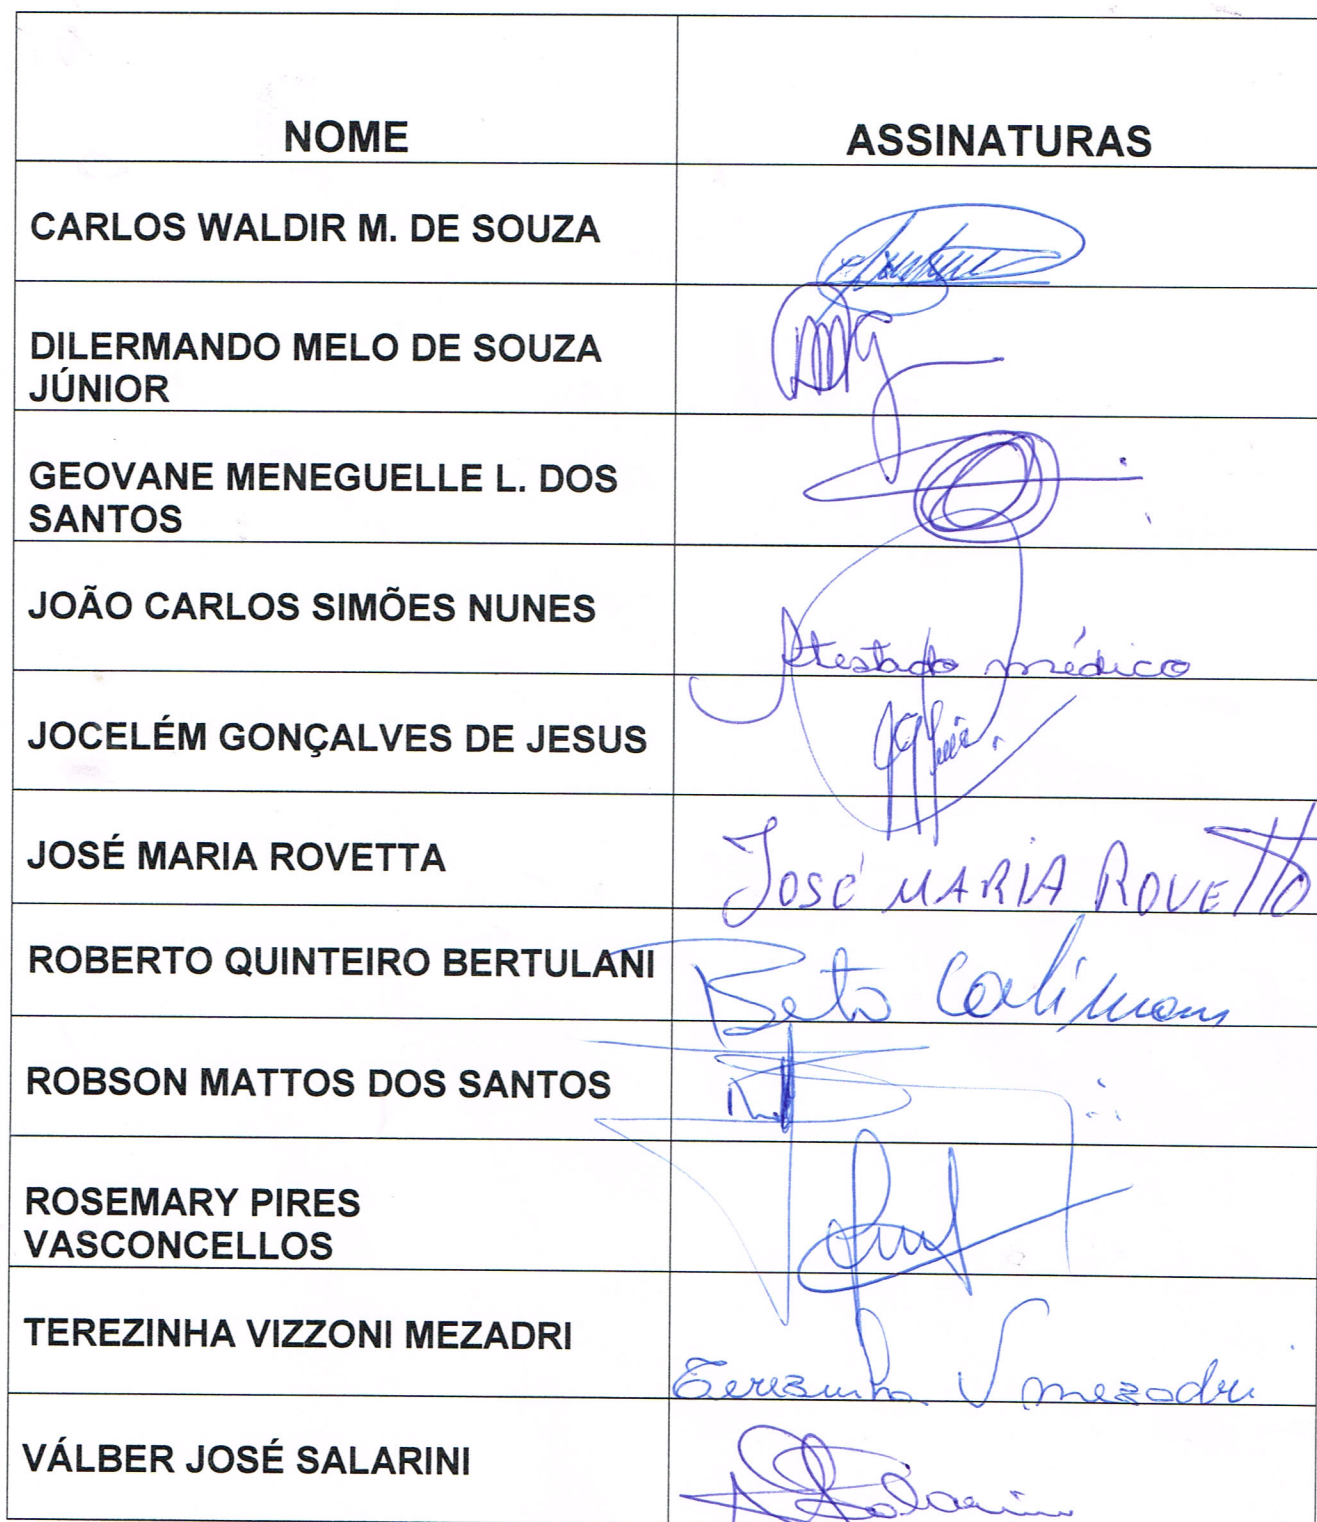 NOME ASSINATURAS
CARLOS WALDIR M. DE SOUZA
DILERMANDO MELO DE SOUZA
JÚNIOR
GEOVANE MENEGUELLE L. DOS
SANTOS
JOÃO CARLOS SIMÕES NUNES
Atestado médico
JOCELÉM GONÇALVES DE JESUS
JOSÉ MARIA ROVETTA
JOSÉ MARIA ROVETTO
ROBERTO QUINTEIRO BERTULANI
Beto
ROBSON MATTOS DOS SANTOS
ROSEMARY PIRES
VASCONCELLOS
TEREZINHA VIZZONI MEZADRI
Terezinha V mezadri
VÁLBER JOSÉ SALARINI
Salarini